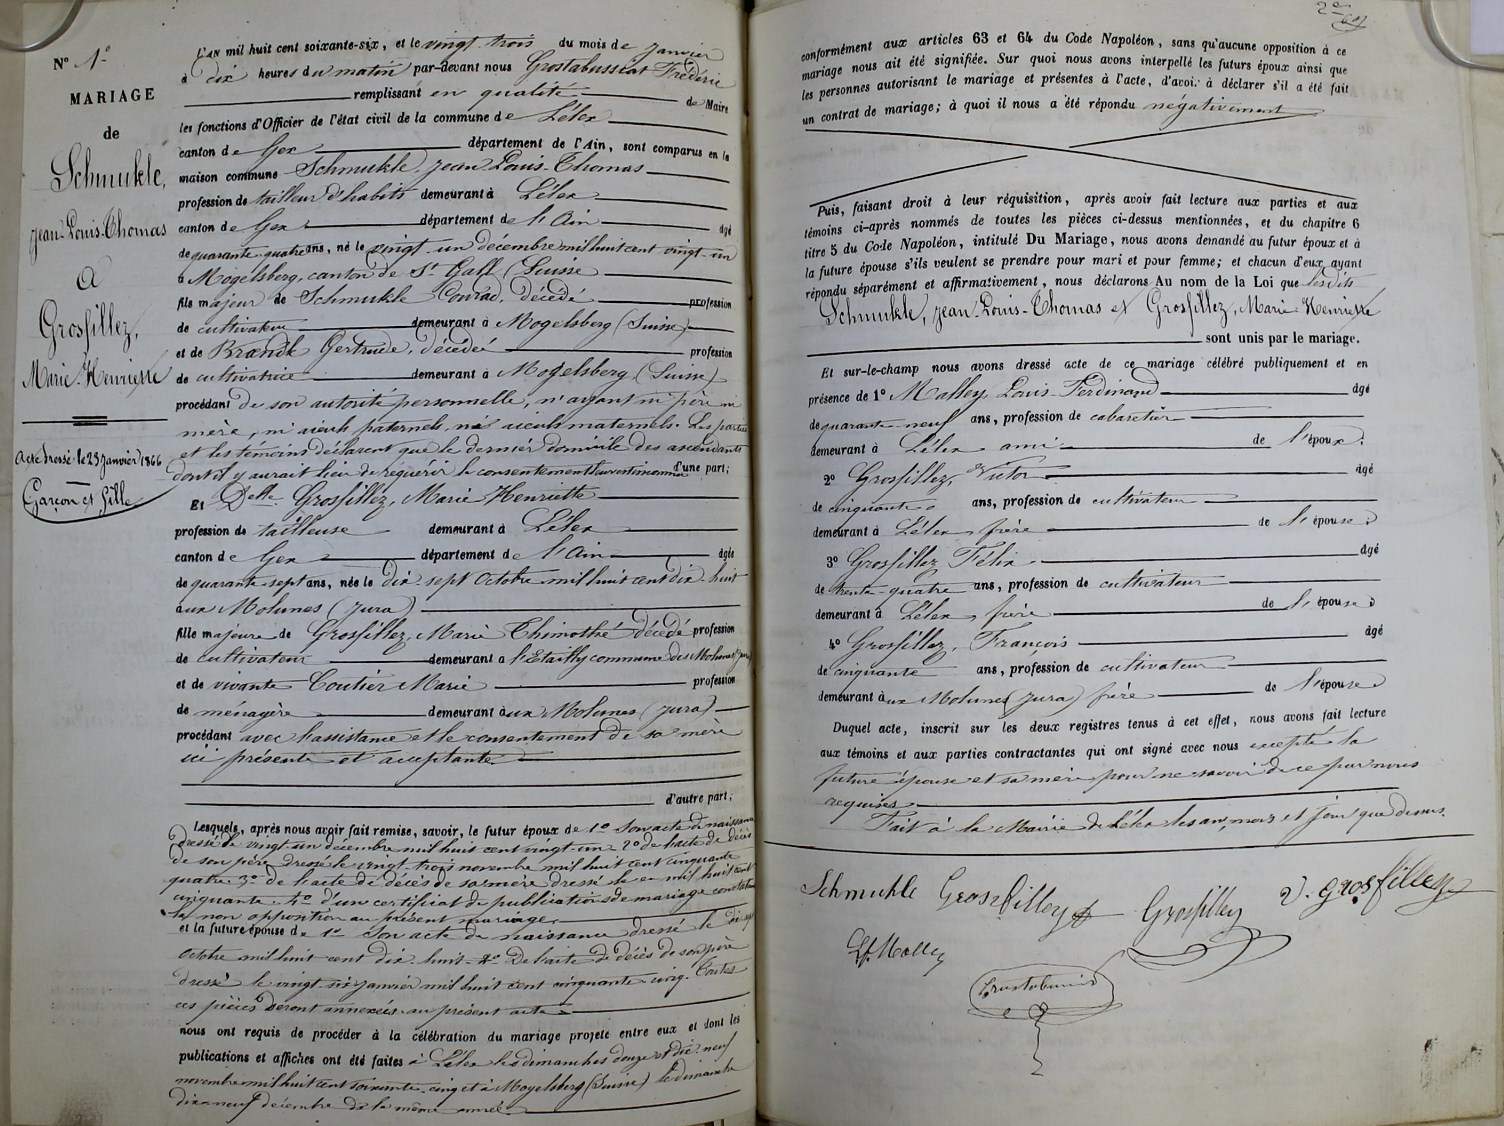 N° 1°
MARIAGE
de
Schmukle,
Jean-Louis-Thomas
A
Grosfillez,
Marie-Henriette
Acte dressé le 23 Janvier 1866
Garçon et fille
L'AN mil huit cent soixante-six, et le vingt-trois du mois de Janvier
à dix heures du matin par-devant nous Grostabussiat Frédéric
remplissant en qualité de Maire
les fonctions d'Officier de l'état civil de la commune de Lélex
canton de Gex département de l'Ain, sont comparus en la
maison commune Schmukle, Jean Louis-Thomas
profession de tailleur d'habits demeurant à Lélex
canton de Gex département de l'Ain âgé
de quarante quatre ans, né le vingt-un décembre mil huit cent vingt-un
à Mogelsberg, canton de St Gall (Suisse)
fils majeur de Schmukle Conrad, décédé profession
de cultivateur demeurant à Mogelsberg (Suisse)
et de Brandt Gertrude, décédée profession
de cultivatrice demeurant à Mogelsberg (Suisse)
procédant de son autorité personnelle, n'ayant ni père ni
mère, ni aieuls paternels, ni aieuls maternels. Les parties
et les témoins déclarent que le dernier domicile des ascendants
dont il y aurait lieu de requérir le consentement leur est inconnu d'une part;
Et Delle Grosfillez, Marie Henriette
profession de tailleuse demeurant à Lélex
canton de Gex département de l'Ain âgée
de quarante sept ans, née le dix sept Octobre mil huit cent dix-huit
aux Molunes (Jura)
fille majeure de Grosfillez, Marie Thimothé décédé profession
de cultivateur demeurant à l'Etailly commune des Molunes (Jura)
et de vivante Coutier Marie profession
de ménagère demeurant aux Molunes (Jura)
procédant avec l'assistance et le consentement de sa mère
ici présente et acceptante
d'autre part;
Lesquels, après nous avoir fait remise, savoir, le futur époux de 1° Son acte de naissance
dressé le vingt un décembre mil huit cent vingt-un 2° de l'acte de décès
de son père dressé le vingt-trois novembre mil huit cent cinquante
quatre 3° de l'acte de décès de sa mère dressé le en mil huit cent
cinquante 4° d'un certificat de publications de mariage constatant
la non opposition au présent mariage,
et la future épouse de 1° Son acte de naissance dressé le dix-sept
Octobre mil huit cent dix huit 2° De l'acte de décès de son père
dressé le vingt six janvier mil huit cent cinquante cinq. Toutes
ces pièces seront annexées au présent acte
nous ont requis de procéder à la célébration du mariage projeté entre eux et dont les
publications et affiches ont été faites à Lélex les dimanches douze et dix-neuf
novembre mil huit cent soixante-cinq et à Mogelsberg (Suisse) le dimanche
dix-neuf décembre de la même année.
conformément aux articles 63 et 64 du Code Napoléon, sans qu'aucune opposition à ce
mariage nous ait été signifiée. Sur quoi nous avons interpellé les futurs époux ainsi que
les personnes autorisant le mariage et présentes à l'acte, d'avoir à déclarer s'il a été fait
un contrat de mariage; à quoi il nous a été répondu négativement
Puis, faisant droit à leur réquisition, après avoir fait lecture aux parties et aux
témoins ci-après nommés de toutes les pièces ci-dessus mentionnées, et du chapitre 6
titre 5 du Code Napoléon, intitulé Du Mariage, nous avons demandé au futur époux et à
la future épouse s'ils veulent se prendre pour mari et pour femme; et chacun d'eux ayant
répondu séparément et affirmativement, nous déclarons Au nom de la Loi que lesdits
Schmukle, Jean Louis-Thomas et Grosfillez, Marie Henriette
sont unis par le mariage.
Et sur-le-champ nous avons dressé acte de ce mariage célébré publiquement et en
présence de 1° Malley Louis-Ferdinand âgé
de quarante-neuf ans, profession de cabaretier
demeurant à Lélex ami de l'époux;
2° Grosfillez, Victor âgé
de cinquante ans, profession de cultivateur
demeurant à Lélex frère de l'épouse;
3° Grosfillez Félix âgé
de trente-quatre ans, profession de cultivateur
demeurant à Lélex frère de l'épouse;
4° Grosfillez, François âgé
de cinquante ans, profession de cultivateur
demeurant aux Molunes (Jura) frère de l'épouse;
Duquel acte, inscrit sur les deux registres tenus à cet effet, nous avons fait lecture
aux témoins et aux parties contractantes qui ont signé avec nous excepté la
future épouse et sa mère pour ne savoir de ce par nous
requises.
Fait à la Mairie de Lélex les an, mois et jour que dessus.
Schmukle Grosfilley Grosfilley V. Grosfillez
Lf Malley
Grostabussiat